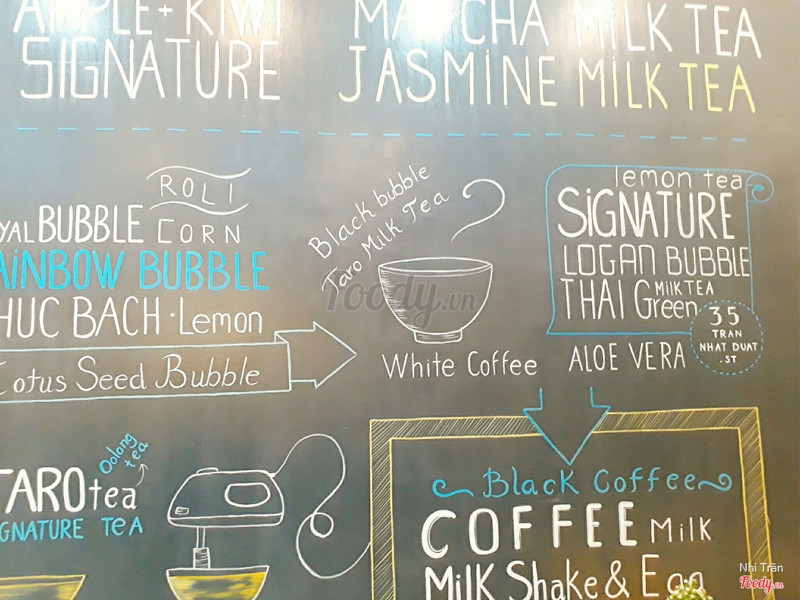 APPLE + KIWI
SIGNATURE
MATCHA MILK TEA
JASMINE MILK TEA
ROLI
BUBBLE CORN
RAINBOW BUBBLE
HUC BACH · Lemon
Lotus Seed Bubble
Black bubble
Taro Milk Tea
White Coffee
lemon tea
SiGNATURE
LOGAN BUBBLE
MilK TEA
THAI Green
35
TRAN
NHAT DUAT
.ST
ALOE VERA
Oolong
tea
TARO tea
SIGNATURE TEA
Black Coffee
COFFEE Milk
MilK Shake & Egg
foody.vn
Nhi Trân
Foody.vn